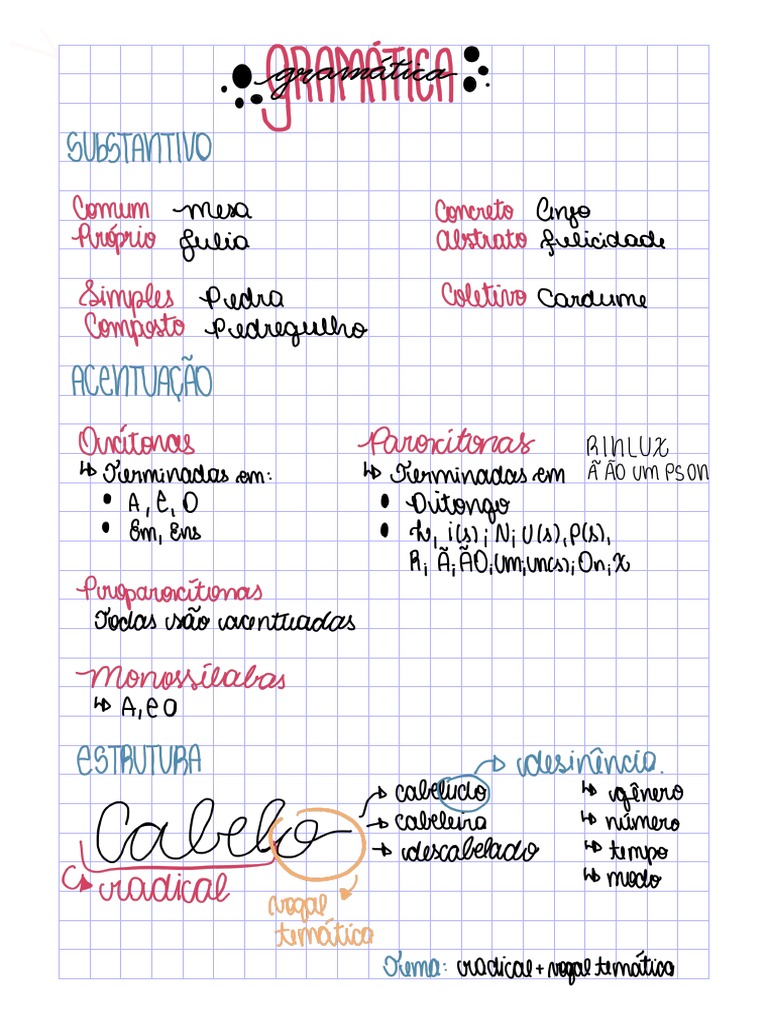 GRAMÁTICA
gramática
SUBSTANTIVO
Comum mesa
Próprio Julia
Concreto Anjo
Abstrato felicidade
Simples Pedra
Composto Pedregulho
Coletivo Cardume
ACENTUAÇÃO
Oxítonas
↳ Terminadas em:
• A, E, O
• Em, Ens
Paroxítonas
↳ Terminadas em
• Ditongo
• L, i(s); N; U(s), P(s),
R; Ã; ÃO; um; un(s); On; X
RINLUX
Ã ÃO UM PS ON
Proparoxítonas
Todas são acentuadas
Monossílabas
↳ A, E O
ESTRUTURA
Cabelo
radical
vogal
temática
cabeludo
cabeleira
descabelado
desinência.
↳ gênero
↳ número
↳ tempo
↳ modo
Tema: radical + vogal temática